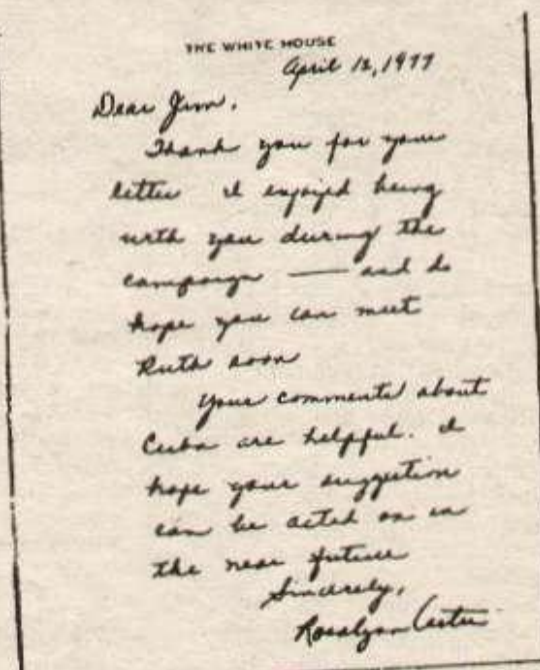 THE WHITE HOUSE
April 12, 1977
Dear Jim,
Thank you for your
letter I enjoyed being
with you during the
campaign — and do
hope you can meet
Ruth soon
Your comments about
Cuba are helpful. I
hope your suggestion
can be acted on in
the near future
Sincerely,
Rosalynn Carter